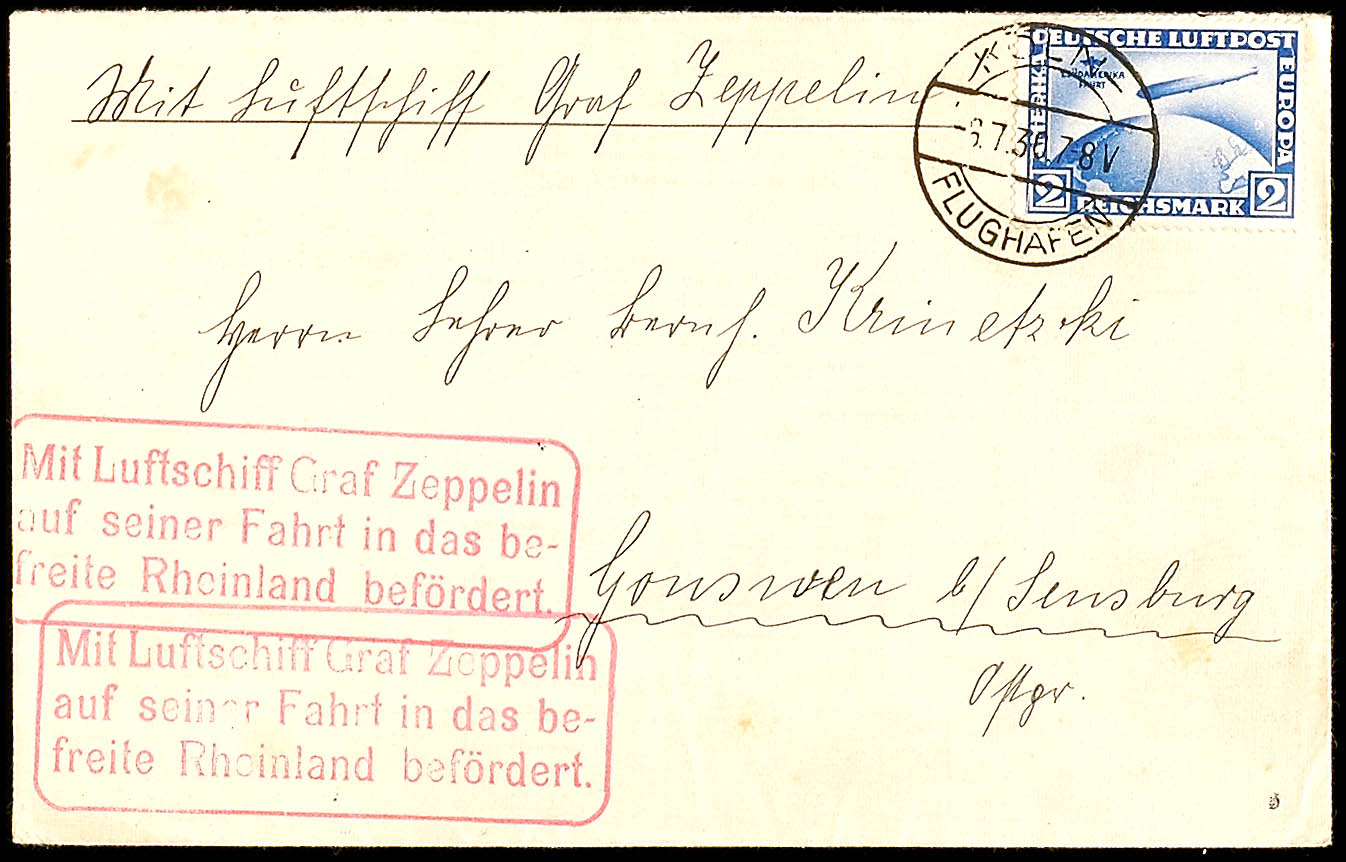 Mit Luftschiff Graf Zeppelin
KÖLN
-6.7.30.7-8 V
FLUGHAFEN
DEUTSCHE LUFTPOST
EUROPA
AMERIKA
SÜDAMERIKA
FAHRT
2 REICHSMARK 2
Herrn Lehrer Bernh. Krinetzki
Mit Luftschiff Graf Zeppelin
auf seiner Fahrt in das be-
freite Rheinland befördert.
Gonswen b/ Sensburg
Ostpr.
Mit Luftschiff Graf Zeppelin
auf seiner Fahrt in das be-
freite Rheinland befördert.